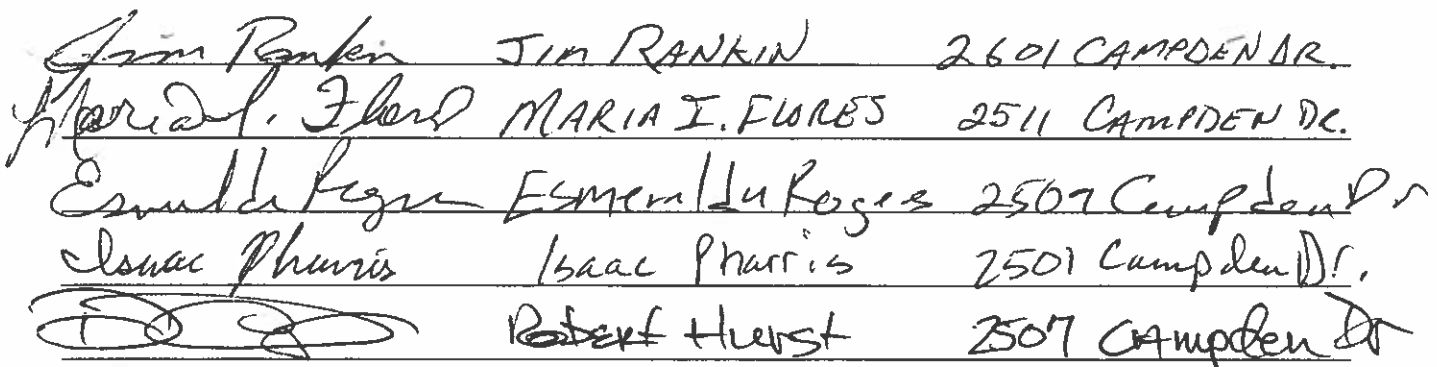 Jim Rankin JIM RANKIN 2601 CAMPDEN DR.
Maria I. Flores MARIA I. FLORES 2511 CAMPDEN DR.
Esmeralda 2509 Campden Dr
Isaac Pharris Isaac Pharris 2501 Campden Dr.
Robert Hurst 2507 Campden Dr